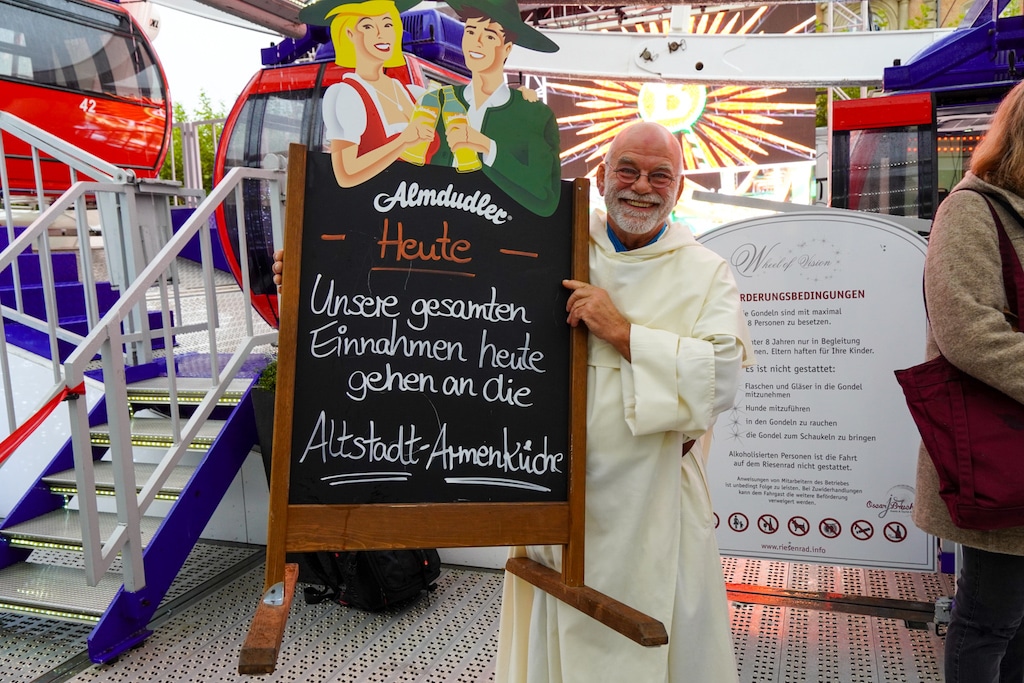 42
Almdudler®
- Heute -
Unsere gesamten
Einnahmen heute
gehen an die
Altstadt-Armenküche
Wheel of Vision
RDERUNGSBEDINGUNGEN
Gondeln sind mit maximal
8 Personen zu besetzen.
8 Jahren nur in Begleitung
Eltern haften für Ihre Kinder.
Es ist nicht gestattet:
Flaschen und Gläser in die Gondel
mitzunehmen
Hunde mitzuführen
in den Gondeln zu rauchen
die Gondel zum Schaukeln zu bringen
Alkoholisierten Personen ist die Fahrt
auf dem Riesenrad nicht gestattet.
Anweisungen von Mitarbeitern des Betriebes
ist unbedingt Folge zu leisten. Bei Zuwiderhandlungen
kann dem Fahrgast die weitere Beförderung
verweigert werden.
www.riesenrad.info